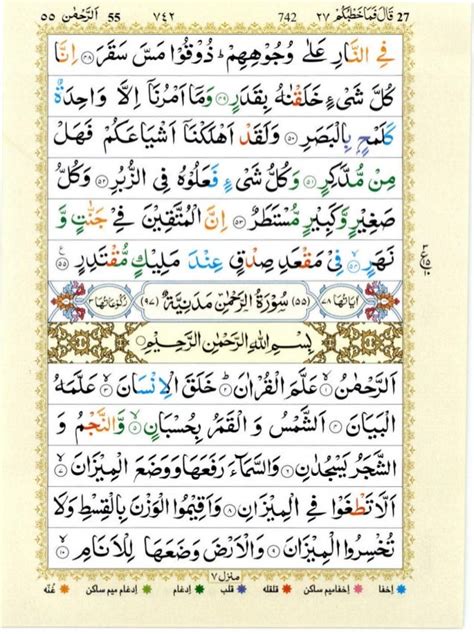 ٥٥ اَلرَّحْمٰن 55 ٧٤٢ 742 ٢٧ قَالَ فَمَا خَطْبُكُمْ 27
فِي النَّارِ عَلٰى وُجُوْهِهِمْ ؕ ذُوْقُوْا مَسَّ سَقَرَ ۝٤٨ اِنَّا
كُلَّ شَيْءٍ خَلَقْنٰهُ بِقَدَرٍ ۝٤٩ وَمَاۤ اَمْرُنَاۤ اِلَّا وَاحِدَةٌ
كَلَمْحٍۭ بِالْبَصَرِ ۝٥٠ وَلَقَدْ اَهْلَكْنَاۤ اَشْيَاعَكُمْ فَهَلْ
مِنْ مُّدَّكِرٍ ۝٥١ وَكُلُّ شَيْءٍ فَعَلُوْهُ فِي الزُّبُرِ ۝٥٢ وَكُلُّ
صَغِيْرٍ وَّكَبِيْرٍ مُّسْتَطَرٌ ۝٥٣ اِنَّ الْمُتَّقِيْنَ فِيْ جَنّٰتٍ وَّ
نَهَرٍ ۝٥٤ فِيْ مَقْعَدِ صِدْقٍ عِنْدَ مَلِيْكٍ مُّقْتَدِرٍ ۝٥٥
اٰيَاتُهَا ٧٨ (٥٥) سُوْرَةُ الرَّحْمٰنِ مَدَنِيَّةٌ (٩٧) رُكُوْعَاتُهَا ٣
بِسْمِ اللّٰهِ الرَّحْمٰنِ الرَّحِيْمِ
اَلرَّحْمٰنُ ۝١ عَلَّمَ الْقُرْاٰنَ ۝٢ خَلَقَ الْاِنْسَانَ ۝٣ عَلَّمَهُ
الْبَيَانَ ۝٤ اَلشَّمْسُ وَ الْقَمَرُ بِحُسْبَانٍ ۝٥ وَّالنَّجْمُ وَ
الشَّجَرُ يَسْجُدٰنِ ۝٦ وَالسَّمَآءَ رَفَعَهَا وَوَضَعَ الْمِيْزَانَ ۝٧
اَلَّا تَطْغَوْا فِي الْمِيْزَانِ ۝٨ وَاَقِيْمُوا الْوَزْنَ بِالْقِسْطِ وَلَا
تُخْسِرُوا الْمِيْزَانَ ۝٩ وَالْاَرْضَ وَضَعَهَا لِلْاَنَامِ ۝١٠
منزل ٧
اِخفا اِخفامیم ساکن قلقله قلب اِدغام اِدغام میم ساکن غُنّه